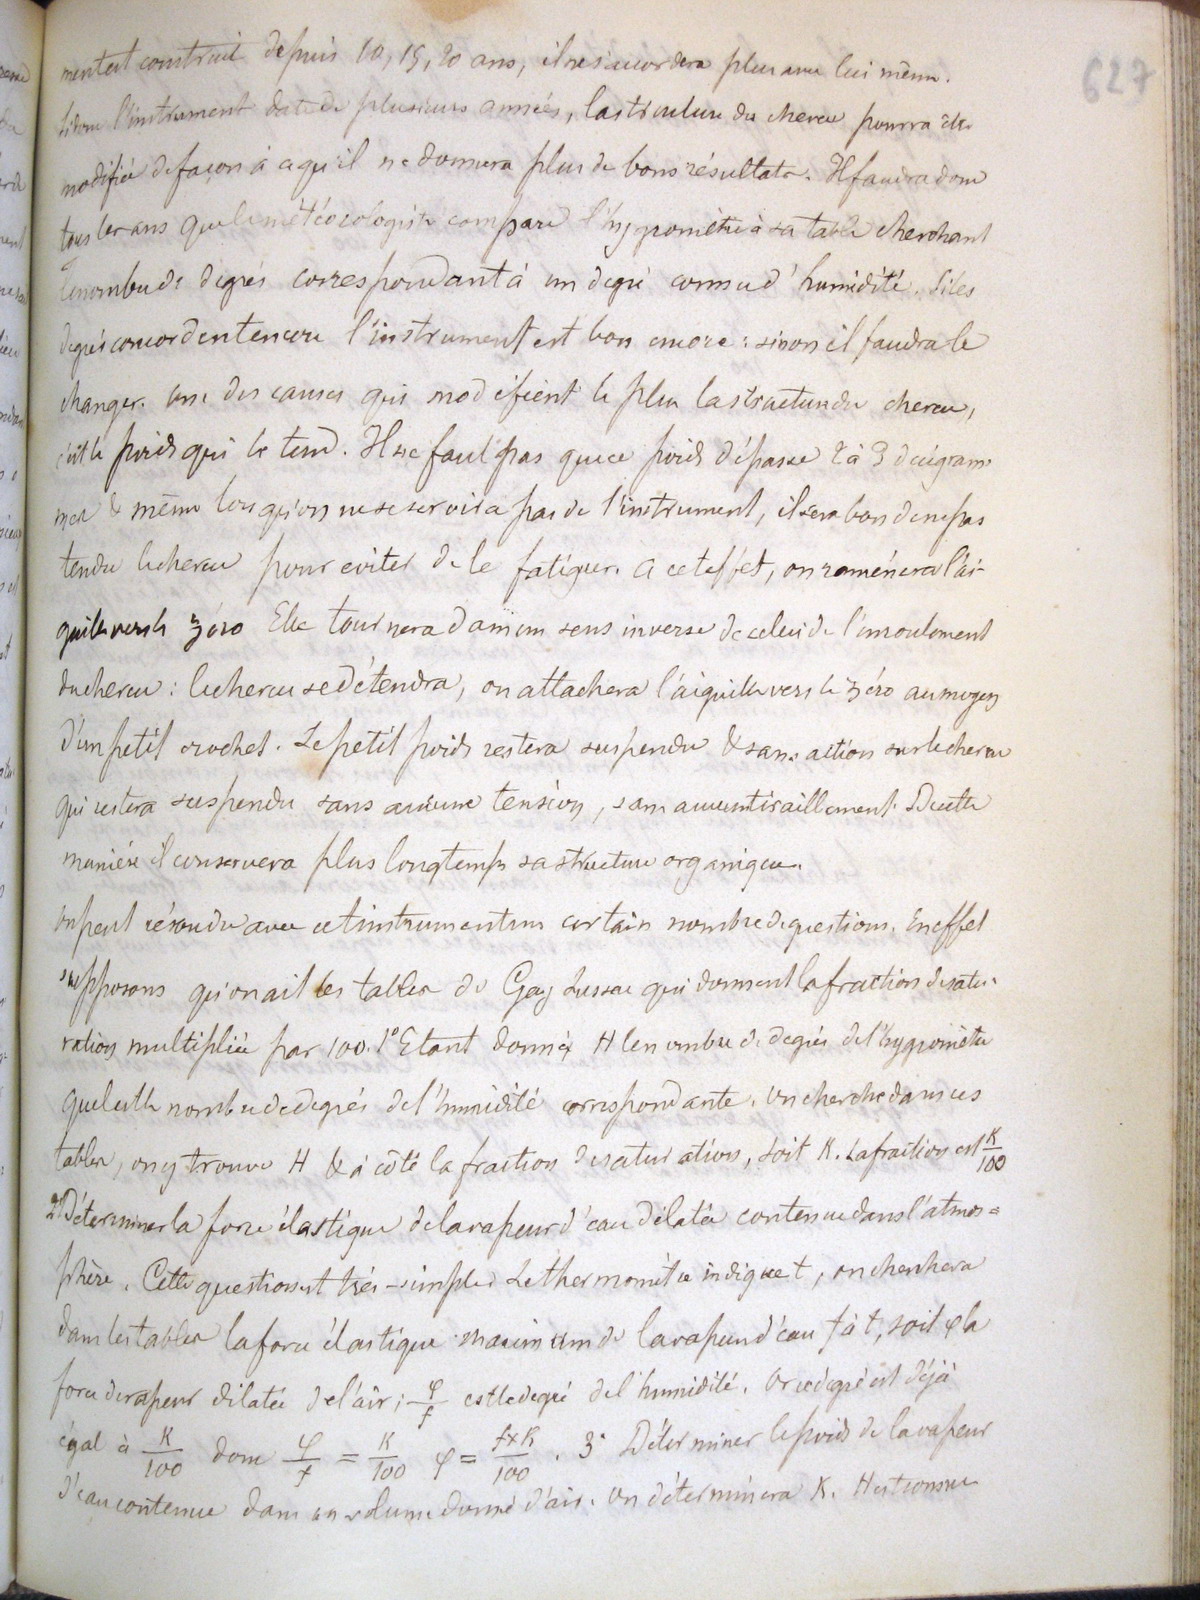 627
ment est construit depuis 10, 15, 20 ans, il ne s'accordera plus avec lui même.
Si donc l'instrument date de plusieurs années, la structure du cheveu pourra être
modifiée de façon à ce qu'il ne donnera plus de bons résultats. Il faudra donc
tous les ans que le météorologiste compare l'hygromètre à sa table cherchant
le nombre de degrés correspondant à un degré connu d'humidité. Si les
degrés concordent encore l'instrument est bon encore : sinon il faudra le
changer. Une des causes qui modifient le plus la structure du cheveu,
c'est le poids qui le tend. Il ne faut pas que ce poids dépasse 2 à 3 décigram-
mes & même lorsqu'on ne se servira pas de l'instrument, il sera bon de ne pas
tendre le cheveu pour éviter de le fatiguer. A cet effet, on ramènera l'ai-
guille vers le zéro Elle tournera dans un sens inverse de celui de l'enroulement
du cheveu : le cheveu se détendra, on attachera l'aiguille vers le zéro au moyen
d'un petit crochet. Le petit poids restera suspendu & sans action sur le cheveu
qui restera suspendu sans aucune tension, sans aucun tiraillement. De cette
manière il conservera plus longtemps sa structure organique.
On peut résoudre avec cet instrument un certain nombre de questions. En effet
supposons qu'on ait les tables de Gay Lussac qui donnent la fraction de satu-
ration multipliée par 100. 1° Etant donné H le nombre de degrés de l'hygromètre
quel est le nombre de degrés de l'humidité correspondante. On cherche dans ces
tables, on y trouve H & à côté la fraction de saturation, soit K. La fraction est K/100
2° Déterminer la force élastique de la vapeur d'eau dilatée contenue dans l'atmos=
phère. Cette question est très-simple. Le thermomètre indique t, on cherchera
dans les tables la force élastique maximum de la vapeur d'eau f à t, soit φ la
force de vapeur dilatée de l'air ; φ/f est le degré de l'humidité. Or ce degré est déjà
égal à K/100 donc φ/f = K/100 φ = f×K/100 . 3° Déterminer le poids de la vapeur
d'eau contenue dans un volume donné d'air. On déterminera K. H est connu